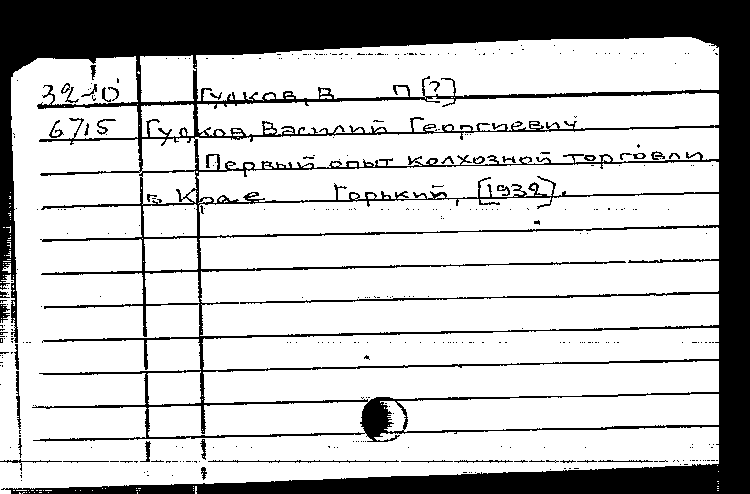 3210 Гудков, В П [?]
6715 Гудков, Василий Георгиевич
Первый опыт колхозной торговли
в Крае Горький, [1932].